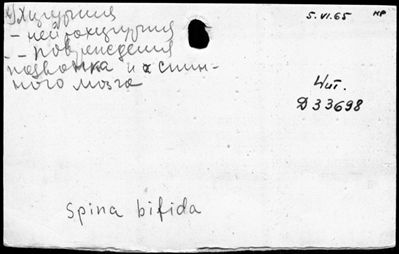 4) Хирургия
– нейрохирургия
– – повреждения
позвонка и спин-
ного мозга
5.VI.65
НР
Шт.
Д33698
Spina bifida